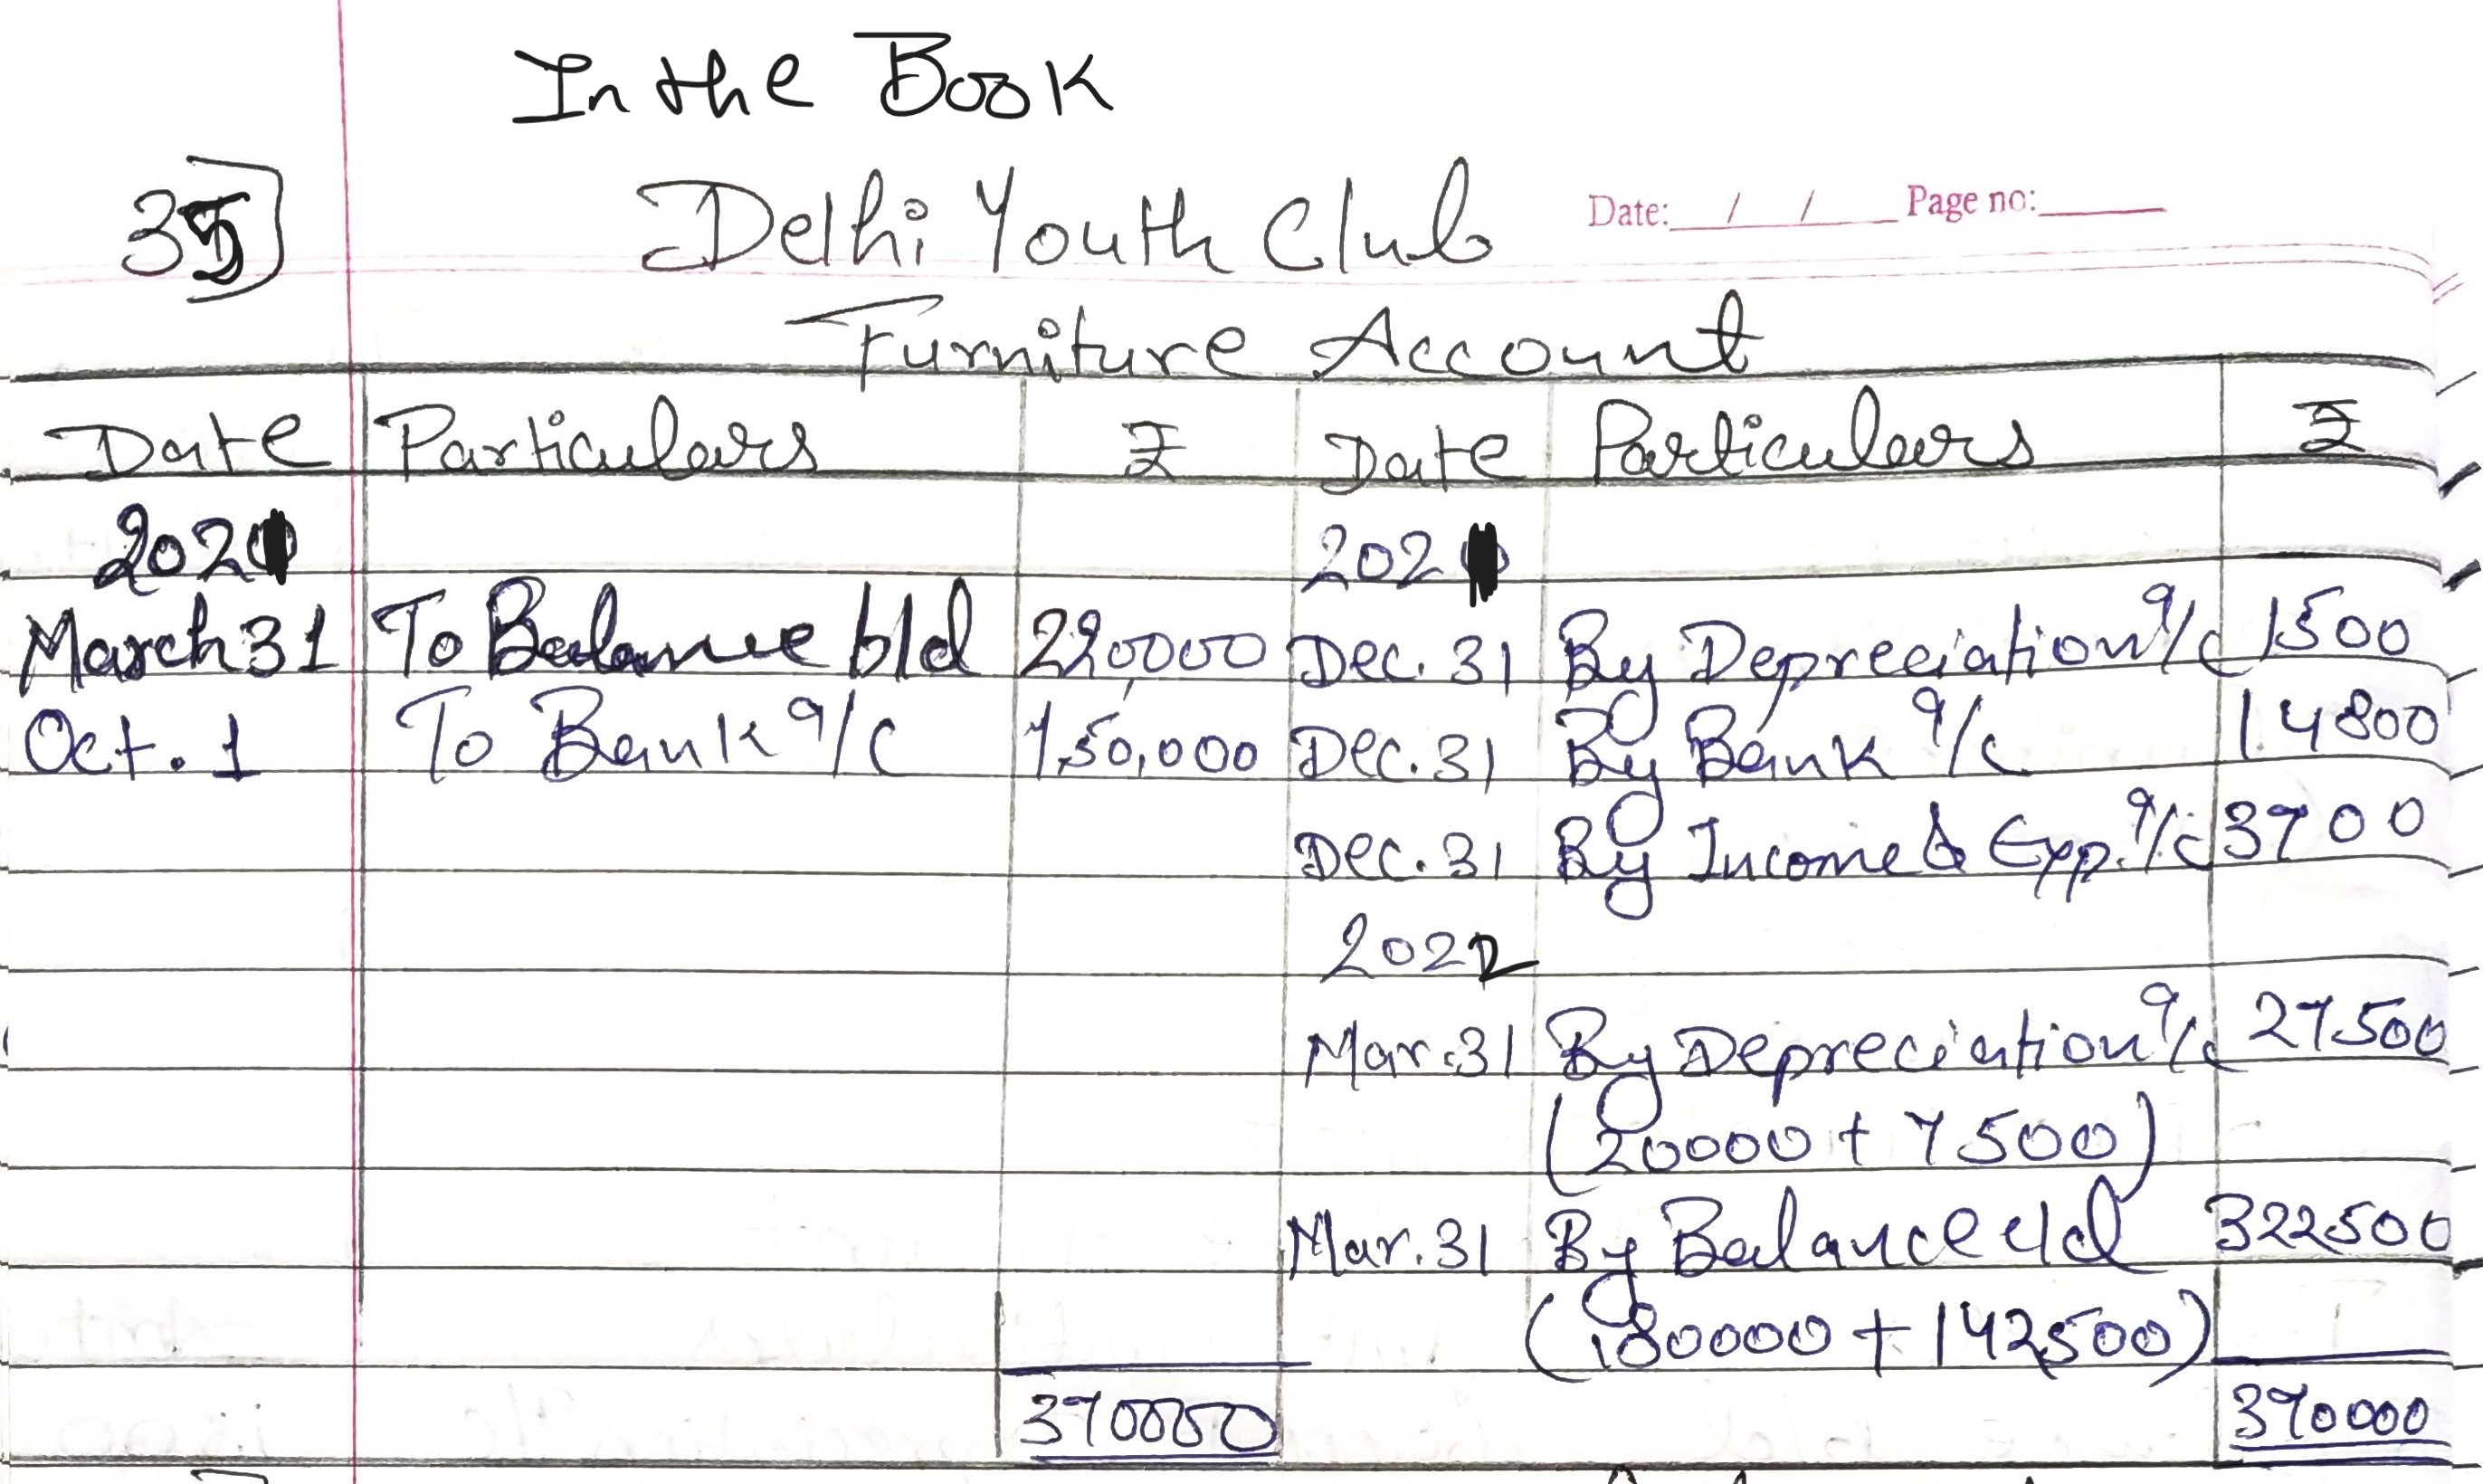 In the Book
35]
Delhi Youth Club
Date: / / Page no:
Furniture Account
Date Particulars ₹ Date Particulars ₹
2021 2021
March 31 To Balance b/d 220000 Dec. 31 By Depreciation a/c 1500
Oct. 1 To Bank a/c 1,50,000 Dec. 31 By Bank a/c 14800
Dec. 31 By Income & Exp. a/c 3700
2022
Mar. 31 By Depreciation a/c 27500
(20000 + 7500)
Mar. 31 By Balance c/d 322500
(180000 + 142500)
370000 370000